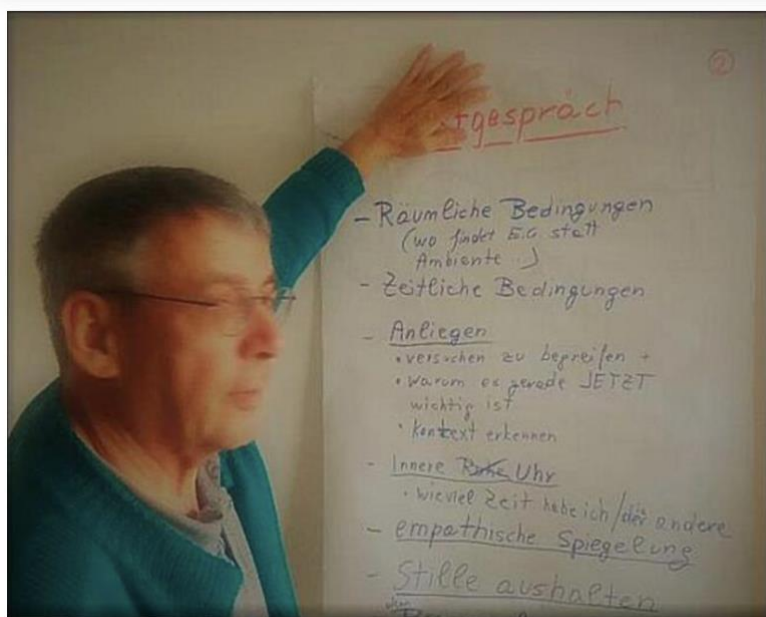 ②
gespräch
- Räumliche Bedingungen
(wo findet E.G. statt
Ambiente ..)
- Zeitliche Bedingungen
- Anliegen
• versuchen zu begreifen +
• warum es gerade JETZT
wichtig ist
• Kontext erkennen
- Innere Uhr
• wieviel Zeit habe ich/der andere
- empathische Spiegelung
- Stille aushalten